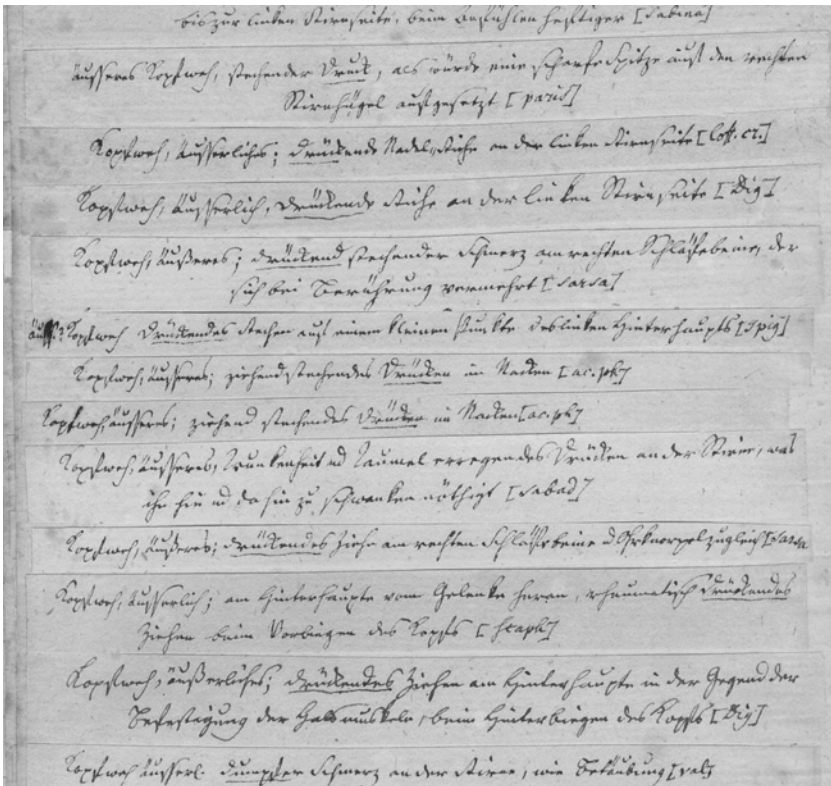 bis zur linken Stirnseite, beim Befühlen heftiger [Sabina]
äusseres Kopfweh, stechender Druck, als würde eine scharfe Spitze auf den rechten
Stirnhügel aufgesetzt [paris]
Kopfweh, äusserliches; drückende Nadelstiche an der linken Stirnseite [Coff. cr.]
Kopfweh, äusserlich, drückende Stiche an der linken Stirnseite [Dig]
Kopfweh, äußeres; drückend stechender Schmerz am rechten Schläfebeine, der
sich bei Berührung vermehrt [Sarsa]
äuss.? Kopfweh drückendes Stechen auf einem kleinen Punkte des linken Hinterhaupts [Spig]
Kopfweh, äusseres; ziehend stechendes Drücken im Nacken [ac. ph]
Kopfweh, äusseres; ziehend stechendes Drücken im Nacken [ac. ph]
Kopfweh, äusseres, Trunkenheit und Taumel erregendes Drücken an der Stirne, was
ihn hin und da hin zu schwanken nöthigt [Sabad]
Kopfweh, äußeres; drückendes Ziehn am rechten Schläfebeine Ohrknorpel zugleich [Sarsa
Kopfweh, äusserlich; am Hinterhaupte vom Gelenke heran, rheumatisch drückendes
Ziehen beim Vorbiegen des Kopfs [Staph]
Kopfweh, äußerliches; drückendes Ziehen am Hinterhaupte in der Gegend der
Befestigung der Halsmuskeln, beim Hinterbiegen des Kopfs [Dig]
Kopfweh äusserl. dumpfer Schmerz an der Stirne, wie Betäubung [val]